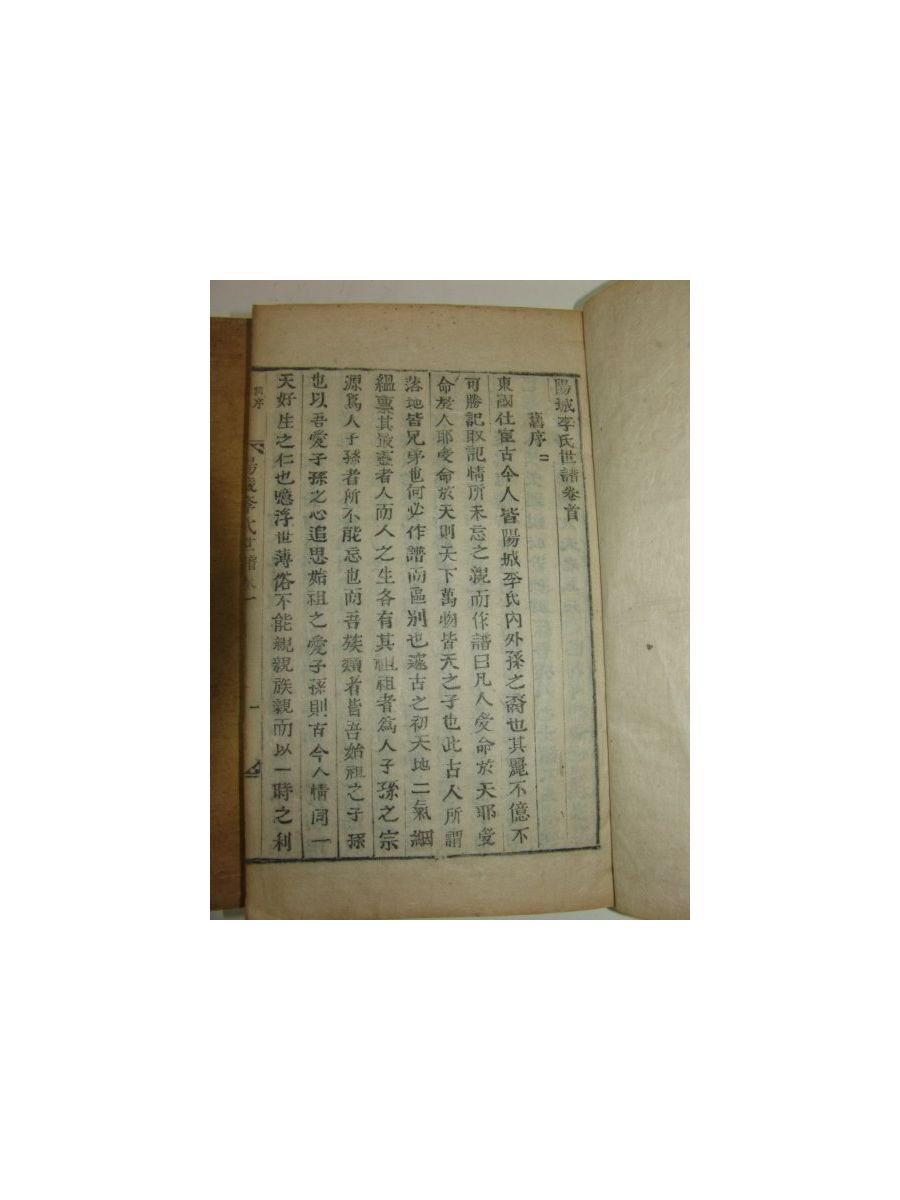 陽城李氏世譜卷首
舊序二
東國仕宦古今人皆陽城李氏內外孫之裔也其麗不億不
可勝記取記情所未忘之親而作譜曰凡人受命於天耶受
命於人耶受命於天則天下萬物皆天之子也此古人所謂
落地皆兄弟也何必作譜而區別也邃古之初天地二氣絪
縕稟其最靈者人而人之生各有其祖祖者爲人子孫之宗
源爲人子孫者所不能忘也而吾族類者皆吾始祖之子孫
也以吾愛子孫之心追思始祖之愛子孫則古今人情同一
天好生之仁也噫浮世薄俗不能親親族親而以一時之利
舊序
陽城李氏世譜
一